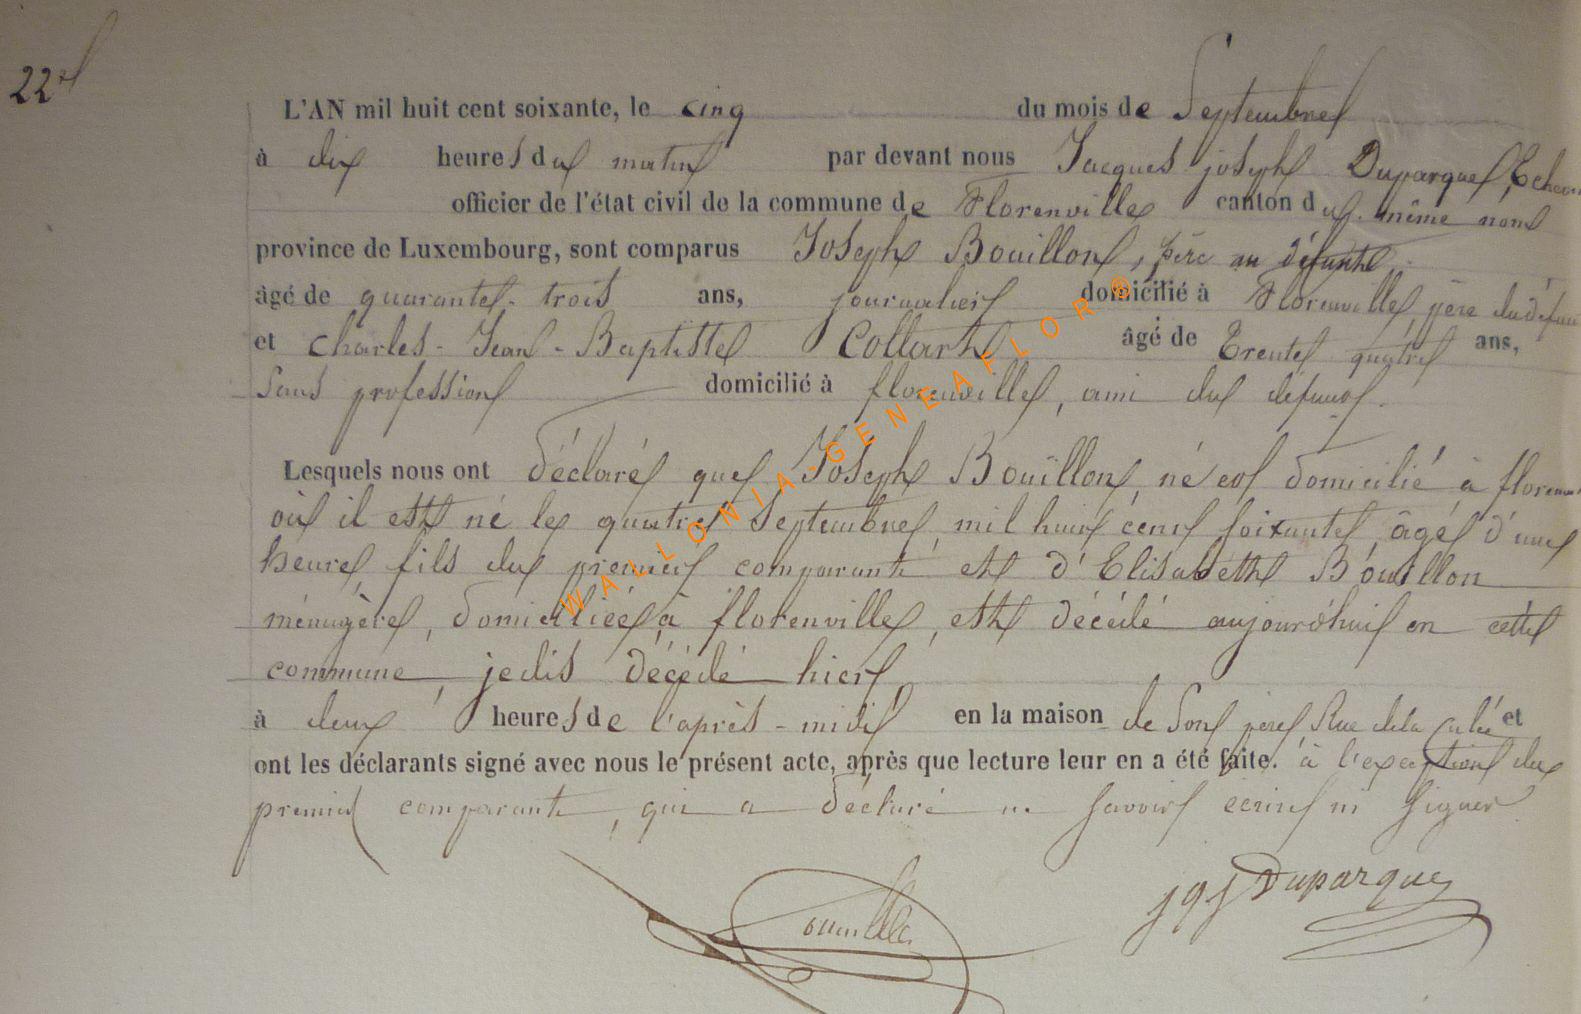 22e
L'AN mil huit cent soixante, le cinq du mois de Septembre
à dix heures du matin par devant nous Jacques joseph Duparque, Echevin
officier de l'état civil de la commune de Florenville canton du même nom
province de Luxembourg, sont comparus Joseph Bouillon, père au défunt
âgé de quarante-trois ans, journalier domicilié à Florenville, père du défunt
et Charles-Jean-Baptiste Collart âgé de Trente quatre ans,
Sans profession domicilié à florenville, ami du défunt.
Lesquels nous ont déclaré que Joseph Bouillon, né et domicilié à florenville
où il est né le quatre Septembre, mil huit cent soixante, âgé d'une
heure, fils du premier comparant et d'Elisabeth Bouillon
ménagère, domiciliée à florenville, est décédé aujourd'hui en cette
commune, je dis décédé hier,
à deux heures de l'après-midi en la maison de Son père, Rue de la et
ont les déclarants signé avec nous le présent acte, après que lecture leur en a été faite. à l'exception du
premier comparant, qui a déclaré ne Savoir écrire ni Signer
JqJ Duparque
WALLONIA-GENEAFLOR®